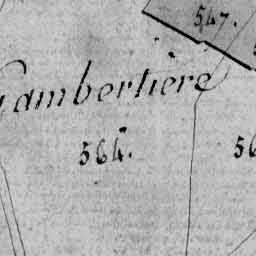 547.
Gambertière
564.
56